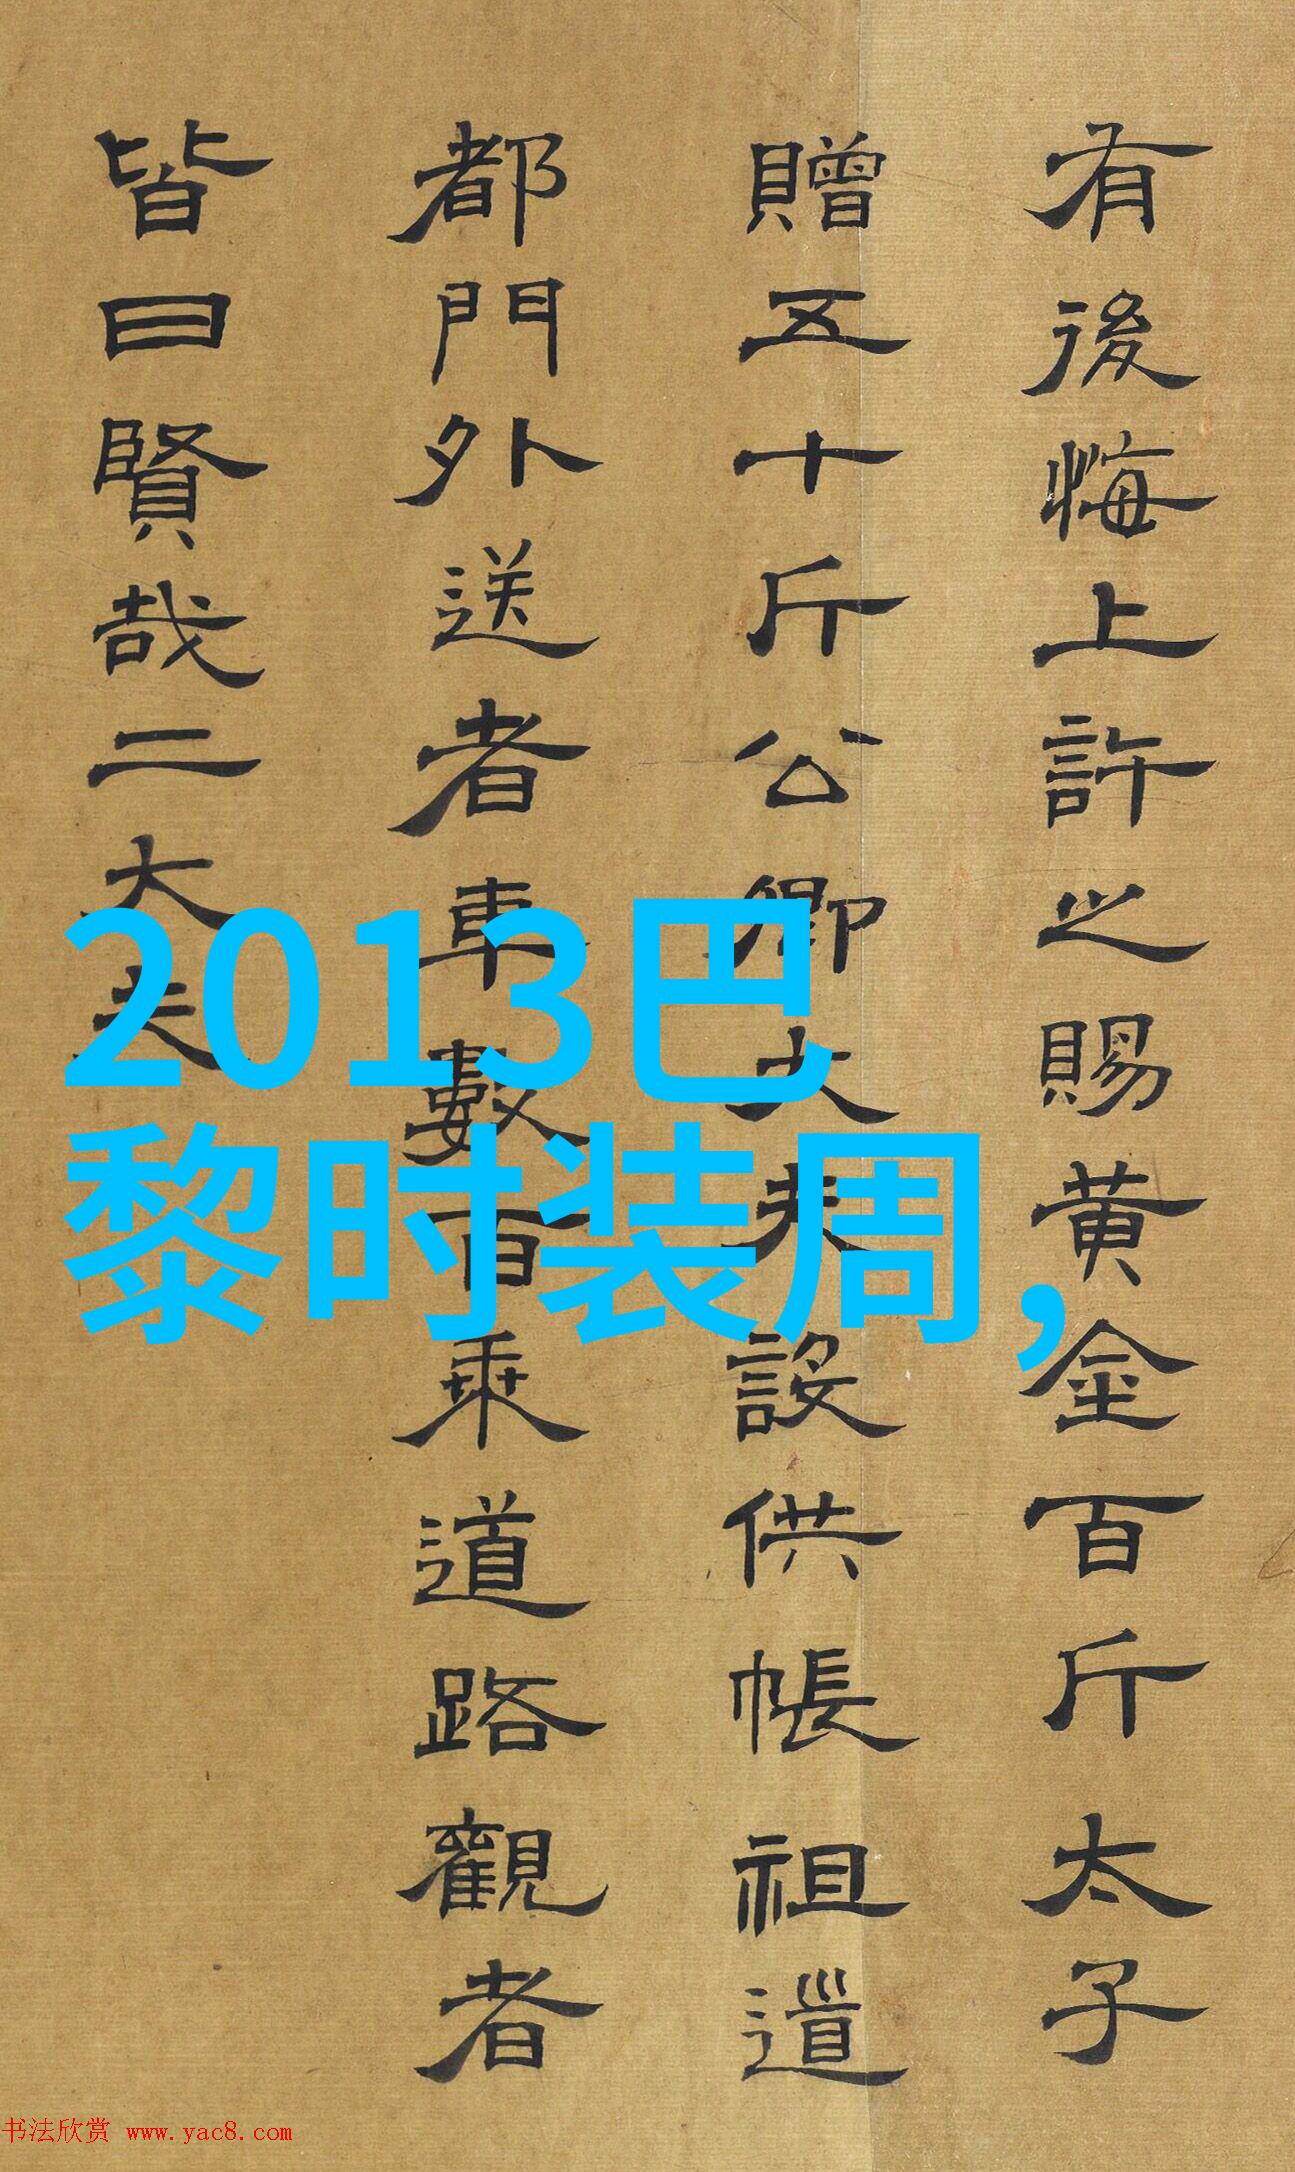 有後悔上許之賜黄金百斤太子
贈五十斤公卿大夫設供帳祖道
都門外送者車數百乘道路觀者
皆曰賢哉二大夫
2013巴
黎时装周,
书法欣赏 www.yac8.com